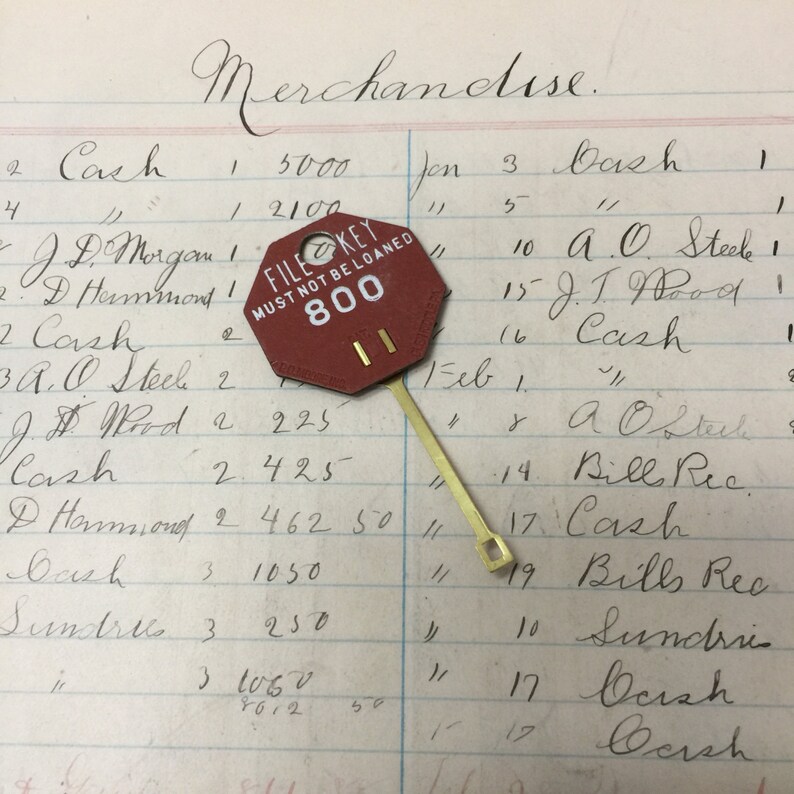 Merchandise.
2 Cash 1 5000
4 " 1 2100
J. D. Morgan 1
D Hammond 1
2 Cash 2
3 A. O Steele 2
J. T. Wood 2 225
Cash 2 425
D Hammond 2 462 50
Cash 3 1050
Sundries 3 250
" 3 1060
8012 50
FILE KEY
MUST NOT BE LOANED
800
Jan 3 Cash 1
" 5 " 1
" 10 A. O. Steele 1
15 J. T. Wood 1
16 Cash 1
Feb 1. "
" 8 A O Steele
" 14 Bills Rec.
" 17 Cash
" 19 Bills Rec
" 10 Sundries
" 17 Cash
17 Cash